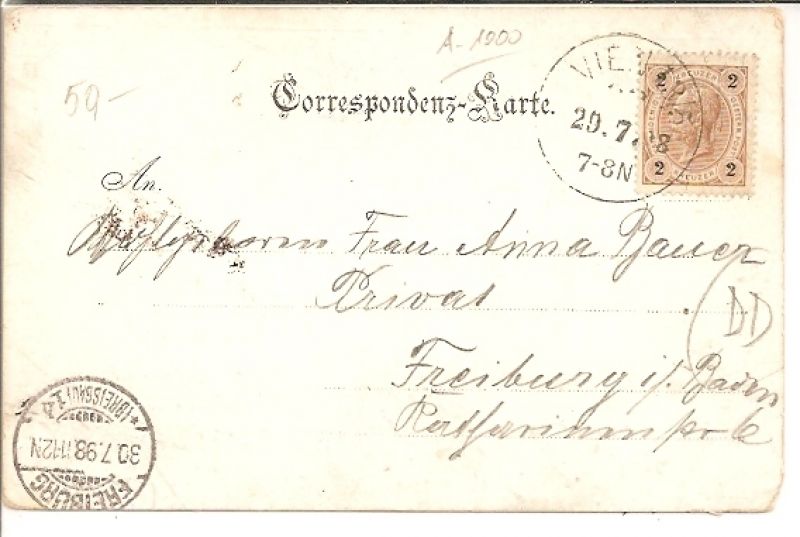 A-1900
59-
Correspondenz-Karte.
VIEN
29.7.98
7-8N
2 KREUZER 2
2 KREUZER 2
An
Frau Anna Bauer
Privat
DD
Freiburg i/ Baden
FREIBURG
(BREISGAU)
30.7.98.1112N